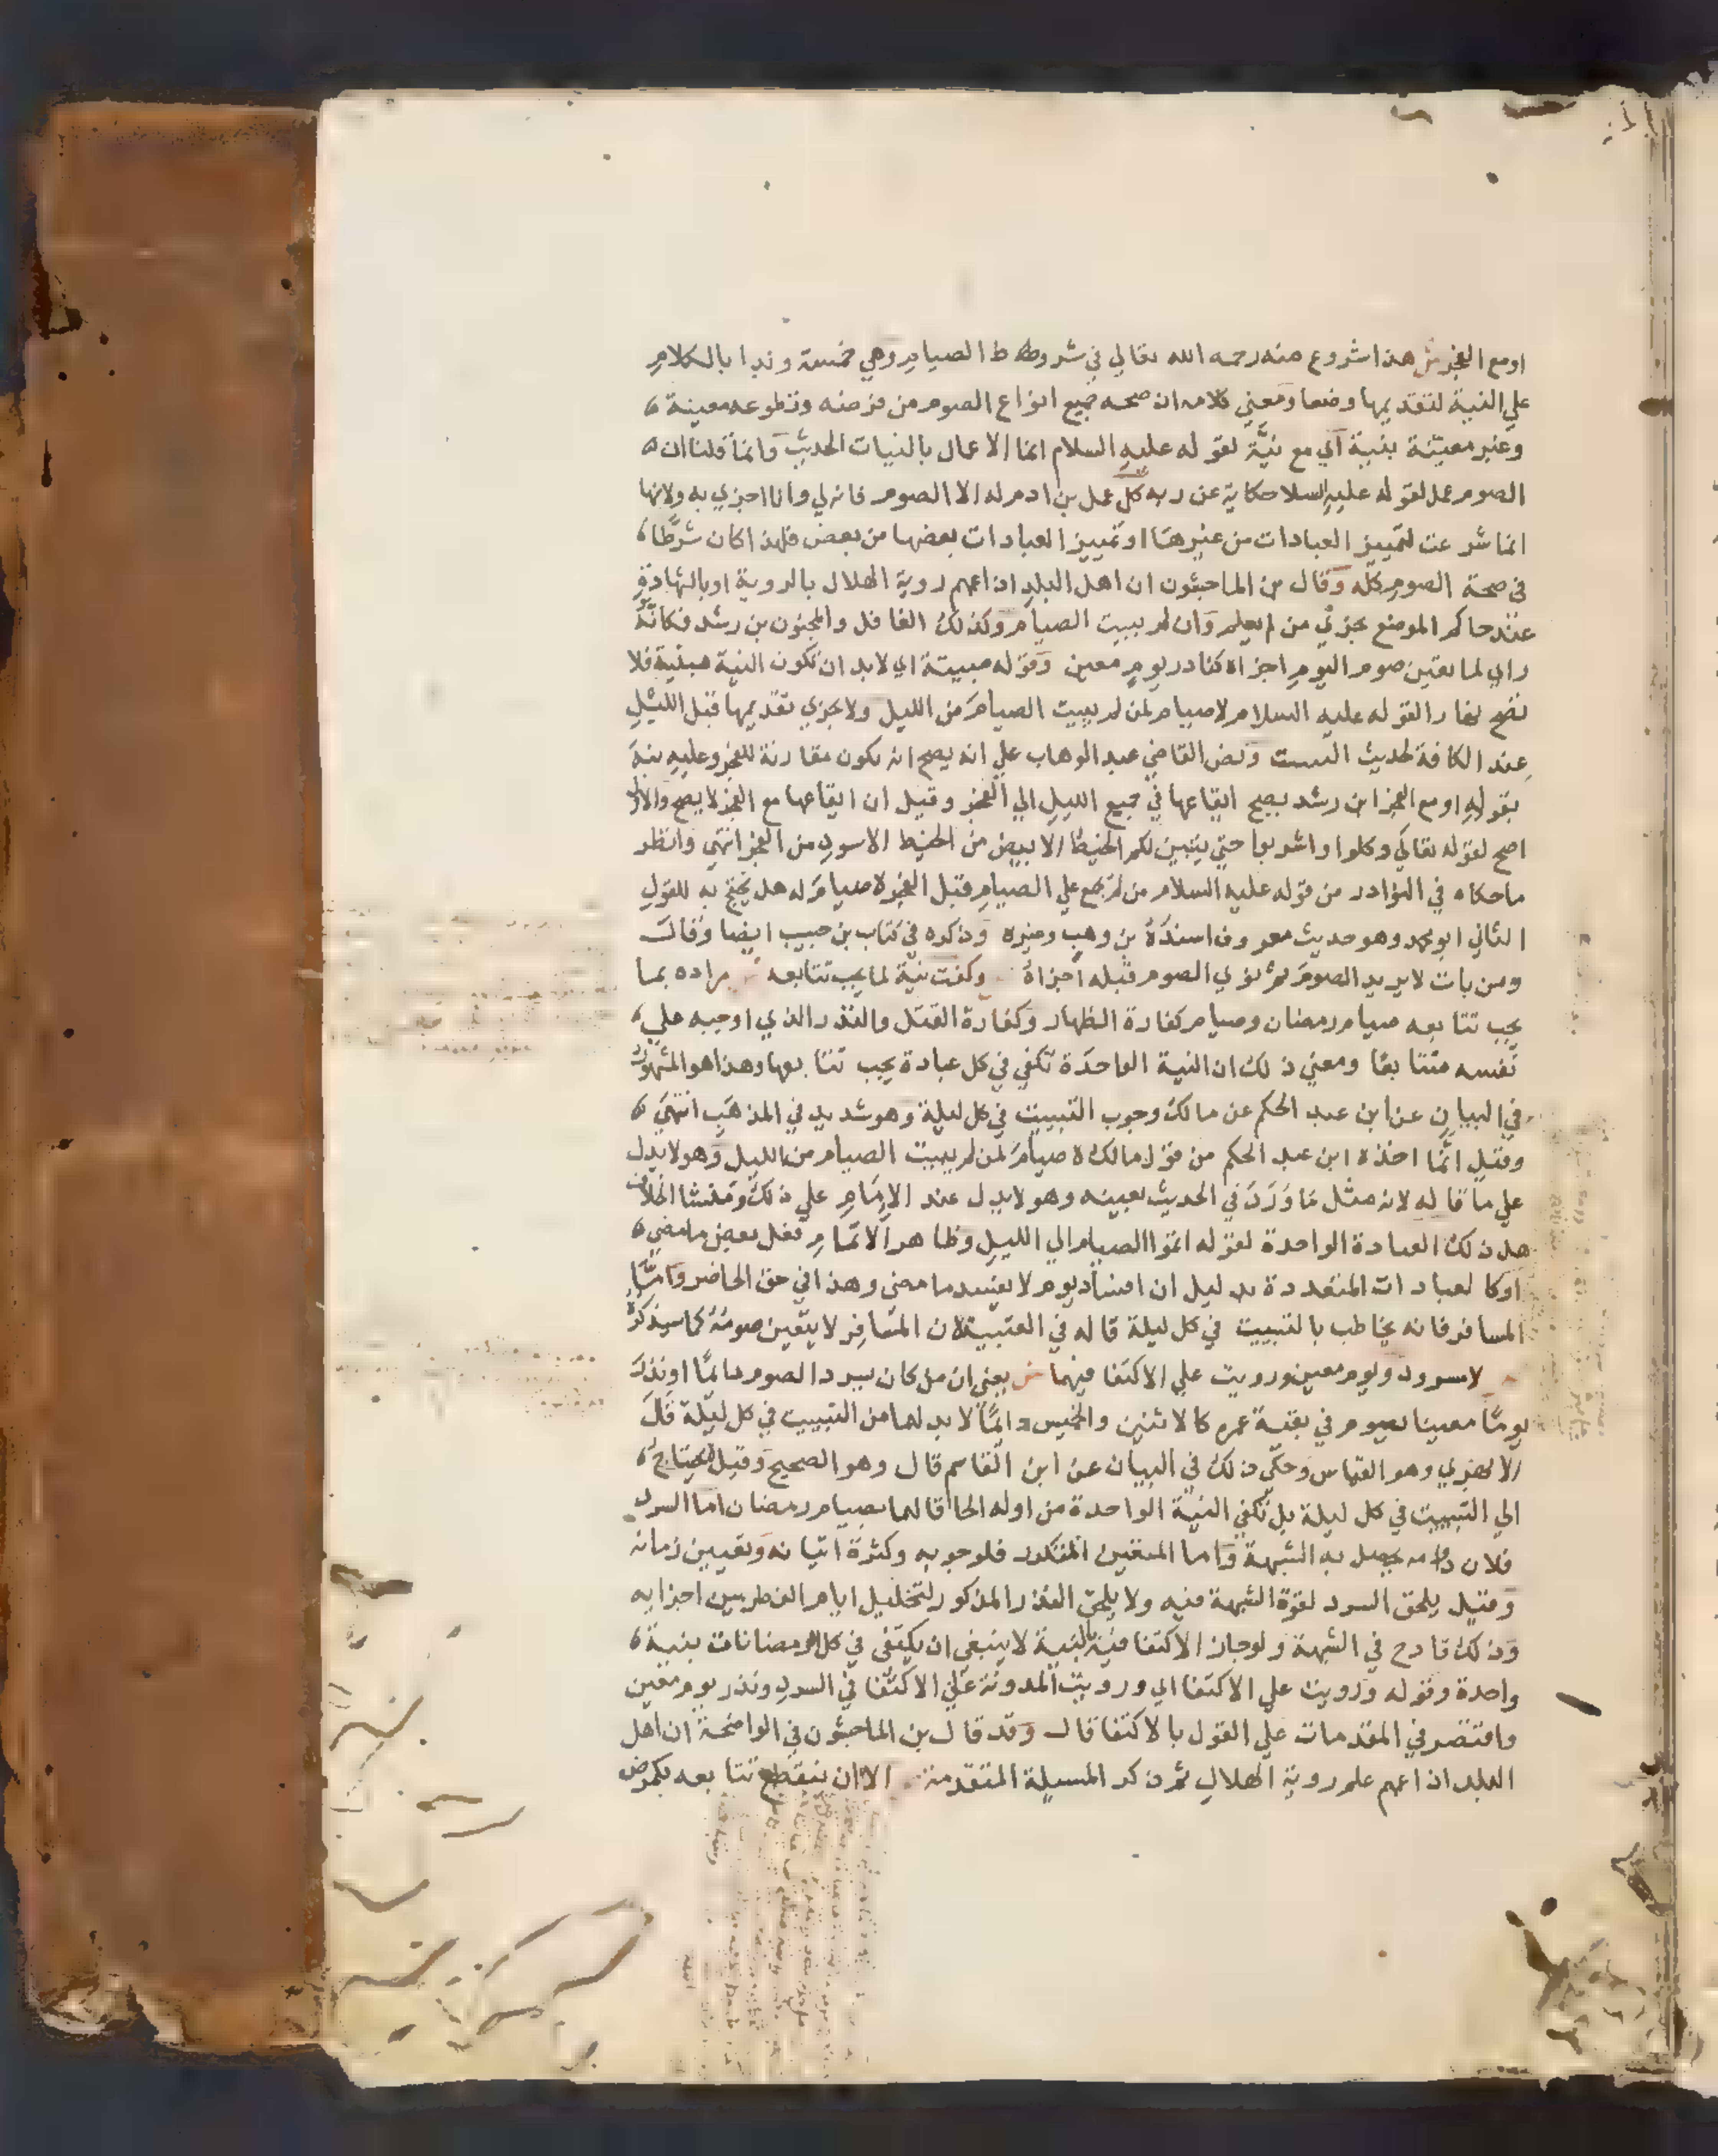 اومع الفجر ش هذا شروع منه رحمه الله تعالي في شروط الصيام وهي خمسة وبدا بالكلام
علي النية لتقديمها وضعا ومعني كلامه ان صحه جميع انواع الصوم من فرضه وتطوعه معينة
وغير معينة بنية اي مع نيَّة لقوله عليه السلام انما الاعمال بالنيات الحديث وانما قلنا ان
الصوم عمل لقوله عليه السلا حكاية عن ربه كل عمل بن ادم له الا الصوم فانه لي وانا اجزي به ولانها
انما شرعت لتمييز العبادات من غيرها اوتمييز العبادات بعضها من بعض فلهذا كان شرطا
في صحة الصوم كله وقال بن الماجشون ان اهل البلد اذا عمهم روية الهلال بالروية او بالشهادة
عند حاكم الموضع يجزي من لم يعلم وان لم يبيت الصيام وكذلك الغافل والمجنون بن رشد فكانه
راي لما تعين صوم اليوم اجزاه كنادر يوم معين وقوله مبيتة اي لابد ان تكون النية مبيتة فلا
تصح نهارا لقوله عليه السلام لا صيام لمن لم يبيت الصيام من الليل ولا يجزي تقديمها قبل الليل
عند الكافة لحديث التبييت ونص القاضي عبد الوهاب علي انه يصح ان تكون مقارنة للفجر وعليه نبه
بقوله اومع الفجر ابن رشد يصح ايقاعها في جميع الليل الي الفجر وقيل ان ايقاعها مع الفجر لا يصح والاول
اصح لقوله تعالي وكلوا واشربوا حتي يتبين لكم الخيط الابيض من الخيط الاسود من الفجر انتهي وانظر
ما حكاه في النوادر من قوله عليه السلام من لم يجمع علي الصيام قبل الفجر لا صيام له هل يحتج به للقول
الثاني ابو محمد وهو حديث معروف اسنده بن وهب وغيره وذكره في كتاب بن حبيب ايضا وقال
ومن بات لا يريد الصوم ثم نوي الصوم قبله اجزاه وكفت نية لما يجب تتابعه مراده بما
يجب تتابعه صيام رمضان وصيام كفارة الظهار وكفارة القتل والنذر الذي اوجبه علي
نفسه متتابعا ومعني ذلك ان النية الواحدة تكفي في كل عبادة يجب تتابعها وهذا هو المشهور
في البيان عن ابن عبد الحكم عن مالك وجوب التبييت في كل ليلة وهو شديد في المذهب انتهي
وقيل انما اخذه ابن عبد الحكم من قول مالك لا صيام لمن لم يبيت الصيام من الليل وهو لا يدل
علي ما قاله لانه مثل ما ورد في الحديث بعينه وهو لا يدل عند الامام علي ذلك ومنشا الخلاف
هل ذلك العبادة الواحدة لقوله اتموا الصيام الي الليل وظاهر الاتمام فعل بعض ما مضي
اوكالعبادات المتعددة بدليل ان افساد يوم لا يفسد ما مضي وهذا في حق الحاضر واما
المسافر فانه يخاطب بالتبييت في كل ليلة قاله في العتبية لان المسافر لا يتعين صومه كما سيذكره
لا مسرود ويوم معين ورويت علي الاكتفا فيهما ش يعني ان من كان يسرد الصوم دائما اونذر
يوما معينا يصوم في بقية عمره كالاثنين والخميس دائما لا بد لهما من التبييت في كل ليلة قال
الابهري وهو القياس وحكي ذلك في البيان عن ابن القاسم قال وهو الصحيح وقيل لا يحتاج
الي التبييت في كل ليلة بل تكفي النية الواحدة من اوله الحاقا لهما بصيام رمضان اما السرد
فلان دوامه يحصل به الشبهة واما المعين المتكرر فلوجوبه وكثرة اتيانه وتعيين زمانه
وقيل يلحق السرد لقوة الشبهة فيه ولا يلحق النذر المذكور لتخليل ايام الفطر بين اجزايه
وذلك قادح في الشبهة ولو جاز الاكتفا فيه بالنية لا ينبغي ان يكتفي في كل الرمضانات بنية
واحدة وقوله ورويت علي الاكتفا اي ورويت المدونة علي الاكتفا في السرد ونذر يوم معين
واقتصر في المقدمات علي القول بالاكتفا قال وقد قال بن الماجشون في الواضحة ان اهل
البلد اذا عمهم علم روية الهلال ثم ذكر المسيلة المتقدمة الا ان ينقطع تتابعه بكمرض